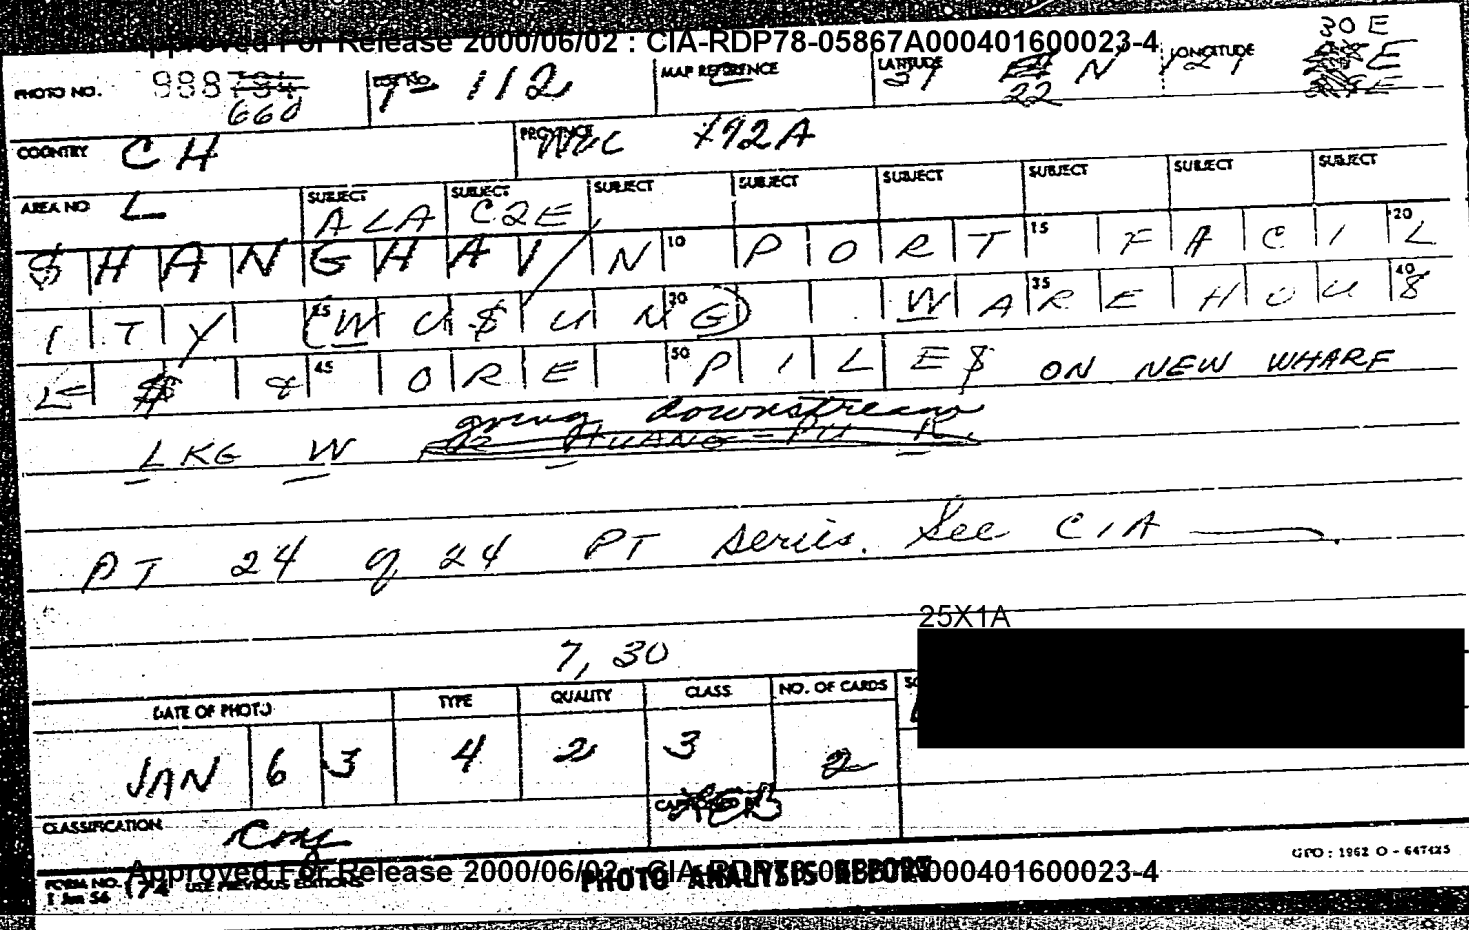 Approved For Release 2000/06/02 : CIA-RDP78-05867A000401600023-4
PHOTO NO. 988794 660 T- 112 MAP REFERENCE LATITUDE 31 22 N LONGITUDE 121 30 E
COUNTRY CH PROVINCE WAC 792A
AREA NO L SUBJECT ALA SUBJECT C2E SUBJECT SUBJECT SUBJECT SUBJECT SUBJECT SUBJECT
$HANGHAI/N 10 PORT 15 FACIL 20
ITY (WU$UNG) 25 30 WAREHOUS 35 40
E$ & 45 ORE 50 PILE$ ON NEW WHARF
going downstream
LKG W HUANG-PU R.
PT 24 of 24 PT series. See CIA
25X1A
7, 30
DATE OF PHOTO TYPE QUALITY CLASS NO. OF CARDS
JAN 63 4 2 3 2
CLASSIFICATION
FORM NO. 174 USE PREVIOUS EDITIONS PHOTO ANALYSIS REPORT GPO : 1962 O - 647425
1 Jan 56
Approved For Release 2000/06/02 : CIA-RDP78-05867A000401600023-4